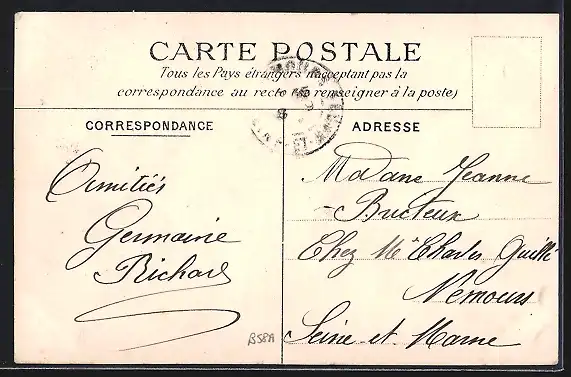 CARTE POSTALE
Tous les Pays étrangers n'acceptant pas la
correspondance au recto (se renseigner à la poste)
CORRESPONDANCE
Amitiés
Germaine
Richard
B58A
ADRESSE
Madame Jeanne
Bucteux
Chez Mr Charles
Nemours
Seine-et-Marne